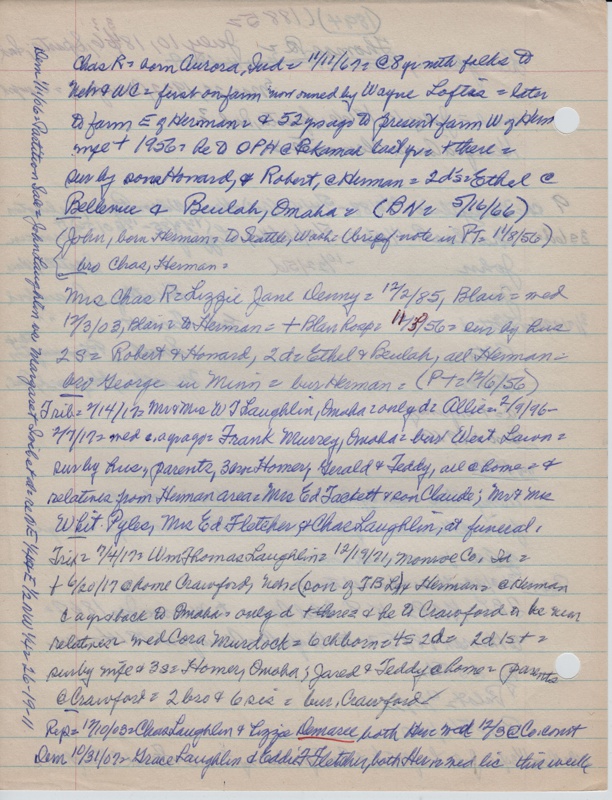 Chas R = born Aurora, Ind = 11/11/67 = @ 8 yr with folks to
Neb & WC = first on farm now owned by Wayne Loftis = later
to farm E of Herman = & 52 yr ago to present farm W of Herm
wife + 1956 = he to OPH @ Tekamah last yr = + there =
sur by sons Howard, & Robert, @ Herman = 2 d's = Ethel @
Bellevue & Beulah, Omaha = (BN = 5/16/66)
(John, born Herman = to Seattle, Wash = (brief note in PT = 11/8/56)
bro Chas, Herman =
Mrs Chas R = Lizzie Jane Denny = 12/2/85, Blair = med
12/3/03, Blair = to Herman = + Blair hosp = 11/ /56 = sur by hus
2 s = Robert & Howard, 2 d = Ethel & Beulah, all Herman =
bro George in Minn = bur Herman = (PT = 12/6/56)
Trib = 2/14/17 = Mr & Mrs W T Laughlin, Omaha = only d = Allie = 2/9/96 -
2/7/17 = med @ yr ago = Frank Murrey, Omaha = bur West Lawn =
sur by hus, parents, 3 bro = Homer, Gerald & Teddy, all @ home = &
relatives from Herman area = Mrs Ed Tackett & son Claude; Mr & Mrs
Whit Pyles, Mrs Ed Fletcher & Chas Laughlin, at funeral.
Trib = 7/4/17 = Wm Thomas Laughlin = 12/19/71, Monroe Co, =
+ 6/20/17 @ home Crawford, Neb = (son of J B L), Herman = @ Herman
@ yr & back to Omaha = only d + there & he to Crawford to be near
relatives = med Cora Murdock = 6 ch born = 4s 2d = 2d 1s + =
sur by wife & 3 s = Homer, Omaha; Jared & Teddy @ home = parents
@ Crawford = 2 bro & 6 sis = bur, Crawford
Rep = 12/10/03 = Chas Laughlin & Lizzie Demaree, both Her = med 12/3 @ Co. court
Dem 10/31/07 = Grace Laughlin & Eddie F Fletcher, both Her = med lic this week
Dem 1/11/06 = Partition Suit = John Laughlin vs Margaret = E 1/2 NW 1/4 = 26-19-11